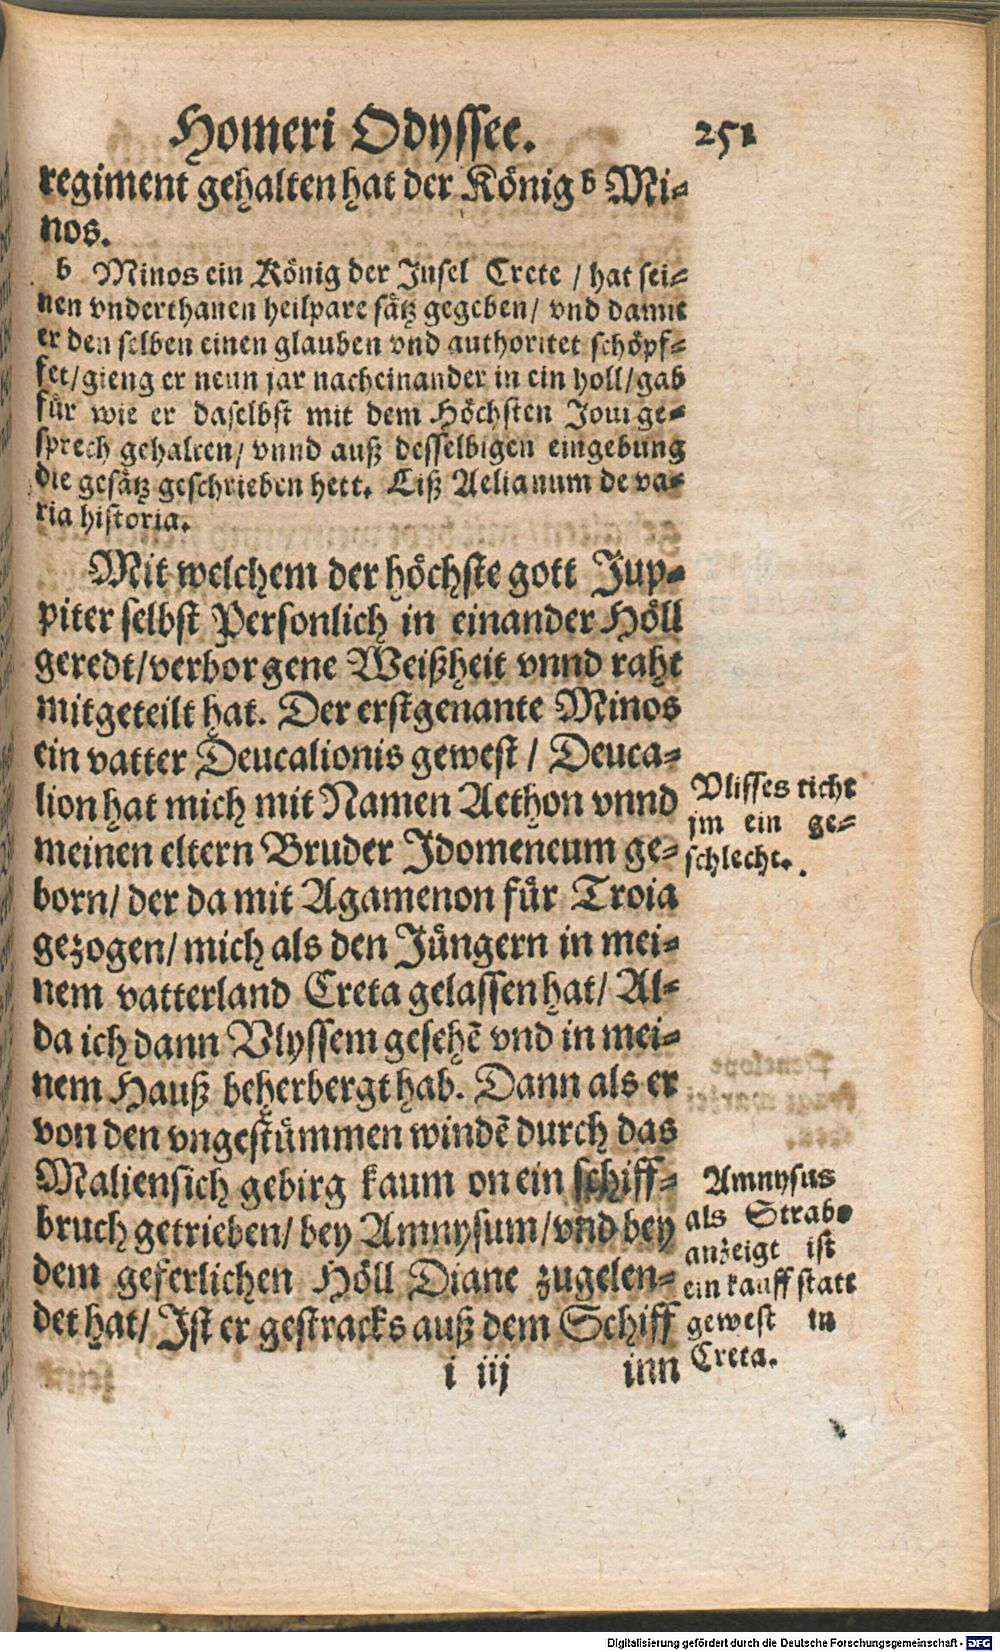 Homeri Odyssee. 251
regiment gehalten hat der König b Mi-
nos.
b Minos ein König der Jnsel Crete / hat sei-
nen vnderthanen heilpare sätz gegeben / vnd damit
er den selben einen glauben vnd authoritet schöpf-
fet / gieng er neun jar nacheinander in ein holl / gab
für wie er daselbst mit dem Höchsten Joui ge-
sprech gehalten / vnnd auß desselbigen eingebung
die gesätz geschrieben hett. Liß Aelianum de va-
ria historia.
Mit welchem der höchste gott Jup-
piter selbst Personlich in einander Höll
geredt / verborgene Weißheit vnnd raht
mitgeteilt hat. Der erstgenante Minos
ein vatter Deucalionis gewest / Deuca-
lion hat mich mit Namen Aethon vnnd
meinen eltern Bruder Jdomeneum ge-
born / der da mit Agamenon für Troia
gezogen / mich als den Jüngern in mei-
nem vatterland Creta gelassen hat / Al-
da ich dann Vlyssem gesehē vnd in mei-
nem Hauß beherbergt hab. Dann als er
von den vngestümmen windē durch das
Maliensich gebirg kaum on ein schiff-
bruch getrieben / bey Amnysum / vnd bey
dem geferlichen Höll Diane zugelen-
det hat / Jst er gestracks auß dem Schiff
i iij inn
Vlisses richt
jm ein ge-
schlecht.
Amnysus
als Strabo
anzeigt ist
ein kauffstatt
gewest in
Creta.
Digitalisierung gefördert durch die Deutsche Forschungsgemeinschaft - DFG